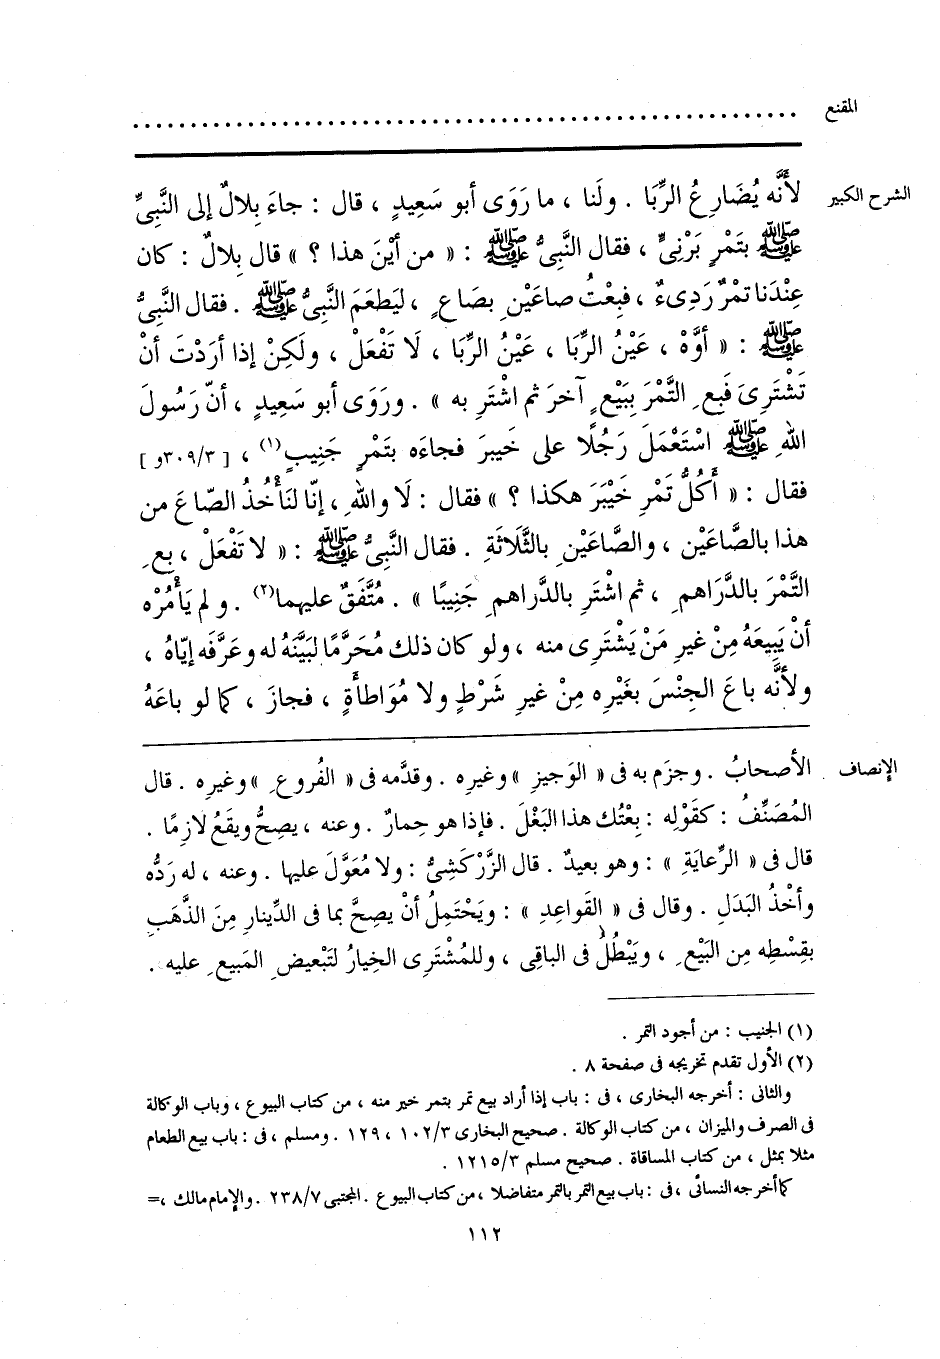 المقنع
الشرح الكبير
لأَنَّه يُضَارِعُ الرِّبَا . ولَنا ، ما رَوَى أبو سَعِيدٍ ، قال : جاءَ بِلالٌ إلى النَّبِىِّ
ﷺ بتَمْرٍ بَرْنِىٍّ ، فقال النَّبِىُّ ﷺ : « من أيْنَ هذا ؟ » قال بِلالٌ : كان
عِنْدَنا تمْرٌ رَدِىءٌ ، فبِعْتُ صاعَيْنِ بصَاعٍ ، ليَطعَمَ النَّبِىُّ ﷺ . فقال النَّبِىُّ
ﷺ : « أوَّهْ ، عَيْنُ الرِّبَا ، عَيْنُ الرِّبَا ، لَا تَفْعَلْ ، ولَكِنْ إذا أرَدْتَ أنْ
تَشْتَرِىَ فَبِعِ التَّمْرَ بِبَيْعٍ آخرَ ثم اشْتَرِ به » . ورَوَى أبو سَعِيدٍ ، أنّ رَسُولَ
اللهِ ﷺ اسْتَعْمَلَ رَجُلًا على خَيبرَ فجاءَه بتَمْرٍ جَنِيبٍ(١) ، [ ٣٠٩/٣و ]
فقال : « أكُلُّ تَمْرِ خَيْبَرَ هكذا ؟ » فقال : لَا واللهِ ، إنّا لنَأْخُذُ الصّاعَ من
هذا بالصَّاعَيْنِ ، والصَّاعَيْنِ بالثَّلَاثَةِ . فقال النَّبِىُّ ﷺ : « لا تَفْعَلْ ، بِعِ
التَّمْرَ بالدَّرَاهمِ ، ثم اشْتَرِ بالدَّراهمِ جَنِيبًا » . مُتَّفَقٌ عليهما(٢) . ولم يَأْمُرْه
أنْ يَبِيعَهُ مِنْ غيرِ مَنْ يَشْتَرِى منه ، ولو كان ذلك مُحَرَّمًا لبَيَّنَهُ له وعَرَّفَه إيّاهُ ،
ولأنَّه باعَ الجِنْسَ بغَيْرِه مِنْ غيرِ شَرْطٍ ولا مُوَاطأَةٍ ، فجازَ ، كما لو باعَهُ
الإنصاف
الأصحابُ . وجزَم به فى « الوَجيزِ » وغيرِه . وقدَّمه فى « الفُروعِ » وغيرِه . قال
المُصَنِّفُ : كقَوْلِه : بِعْتُك هذا البَغْلَ . فإذا هو حِمارٌ . وعنه ، يصِحُّ ويقَعُ لازِمًا .
قال فى « الرِّعايَةِ » : وهو بعيدٌ . قال الزَّرْكَشِىُّ : ولا مُعَوَّلَ عليها . وعنه ، له رَدُّه
وأخْذُ البَدَلِ . وقال فى « القَواعِدِ » : ويَحْتَمِلُ أنْ يصِحَّ بما فى الدِّينارِ مِنَ الذَّهَبِ
بقِسْطِه مِن البَيْعِ ، ويَبْطُلُ فى الباقِى ، وللمُشْتَرِى الخِيارُ لتَبْعيضِ المَبيعِ عليه .
(١) الجنيب : من أجود التمر .
(٢) الأول تقدم تخريجه فى صفحة ٨ .
والثانى : أخرجه البخارى ، فى : باب إذا أراد بيع تمر بتمر خير منه ، من كتاب البيوع ، وباب الوكالة
فى الصرف والميزان ، من كتاب الوكالة . صحيح البخارى ١٠٢/٣ ، ١٢٩ . ومسلم ، فى : باب بيع الطعام
مثلا بمثل ، من كتاب المساقاة . صحيح مسلم ١٢١٥/٣ .
كما أخرجه النسائى ، فى : باب بيع التمر بالتمر متفاضلا ، من كتاب البيوع . المجتبى ٢٣٨/٧ . والإمام مالك ، =
١١٢